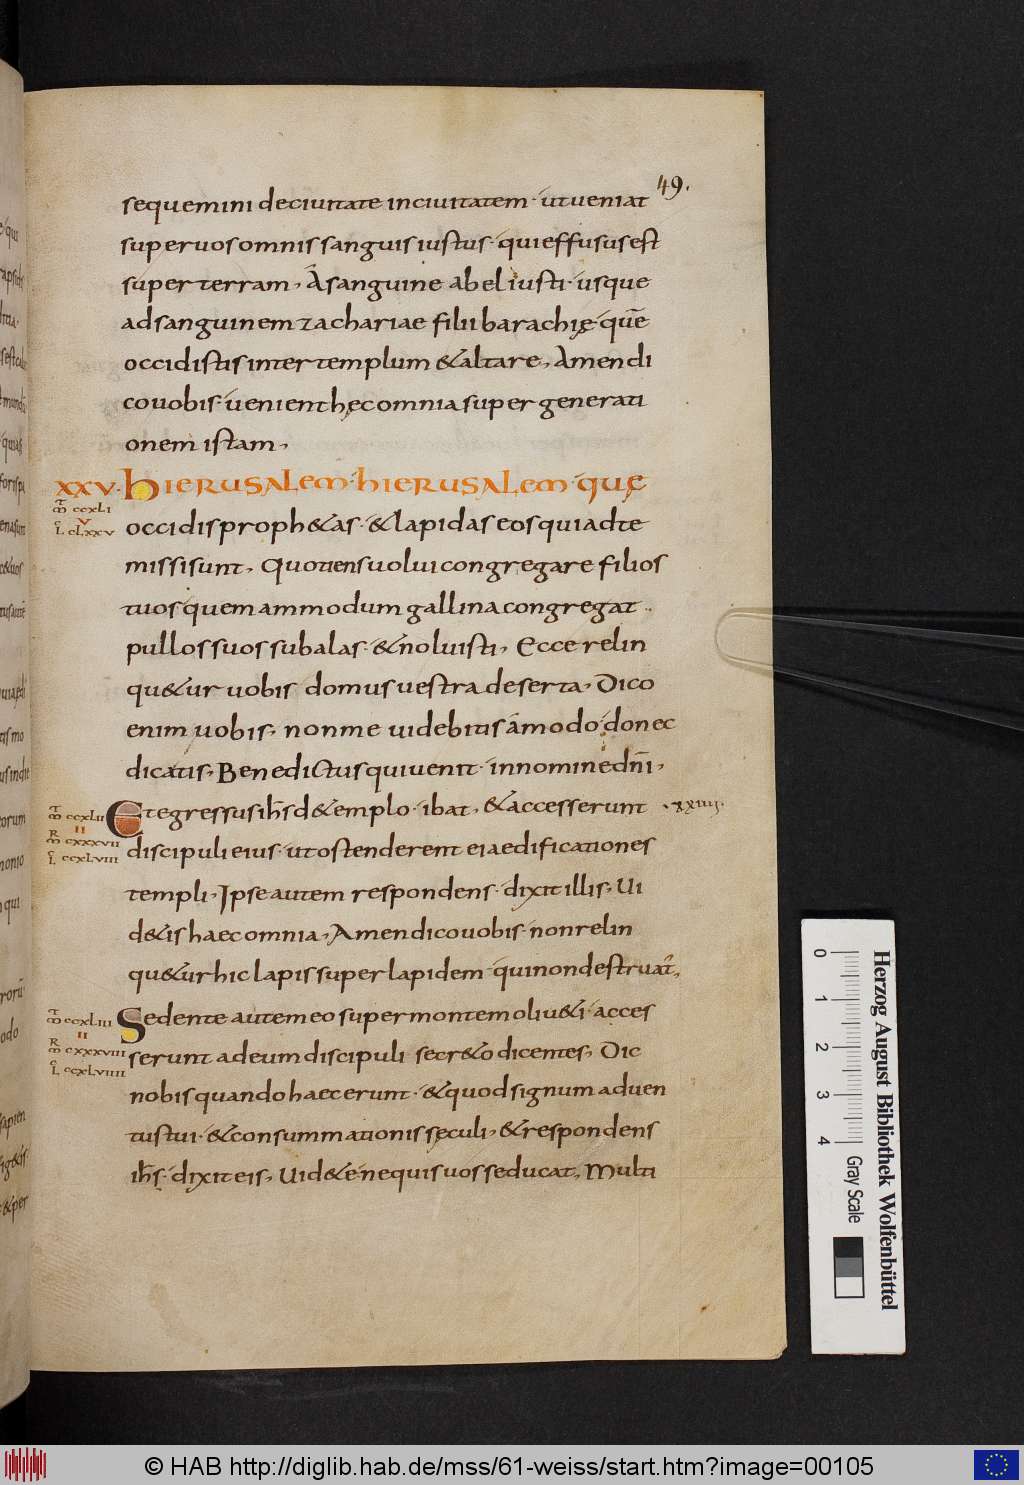 49.
sequemini deciuitate inciuitatem· utueniat
superuosomnissanguisiustus· quieffususest
super terram, Asanguine abeliusti· usque
adsanguinem zachariae filii barachię· quē
occidistis inter templum &altare, Amendi
covobis· uenienthęcomnia super generati
onem istam,
XXV· hIERUSALEM· hIERUSALEM· quę
occidis proph&as· &lapidas eos quiadte
missisunt, Quotiensuolui congregare filios
tuos quemammodum gallina congregat
pullos suos subalas· &noluisti, Ecce relin
qu&ur uobis domus uestra deserta, Dico
enim uobis, nonme uidebitis amodo· donec
dicatis, Benedictus quiuenit· innominedn̄i,
Etegressus ih̄s d&emplo· ibat, &accesserunt ·xxiiii·
discipuli eius· utostenderent ei aedificationes
templi, Ipse autem respondens· dixit illis, Ui
d&is haec omnia, Amendicouobis· nonrelin
qu&ur hic lapis super lapidem· quinondestruat̉,
Sedente autem eo super montem oliu&i· acces
serunt adeum discipuli secr&o dicentes, Dic
nobis quando haec erunt· &quod signum aduen
tustui· &consummationis sęculi, &respondens
ih̄s· dixit eis, Uid&e· nequis uos seducat, Multi
CCXLI
V
CLXXV
CCXLII
II
CXXXVII
CCXLVIII
CCXLIII
II
CXXXVIII
CCXLVIIII
0 1 2 3 4
Gray Scale
Herzog August Bibliothek Wolfenbüttel
© HAB http://diglib.hab.de/mss/61-weiss/start.htm?image=00105